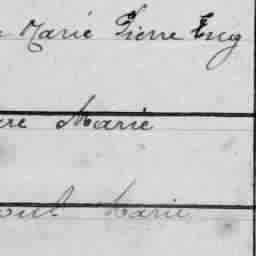 Marie Pierre Eug
re Marie
Marie